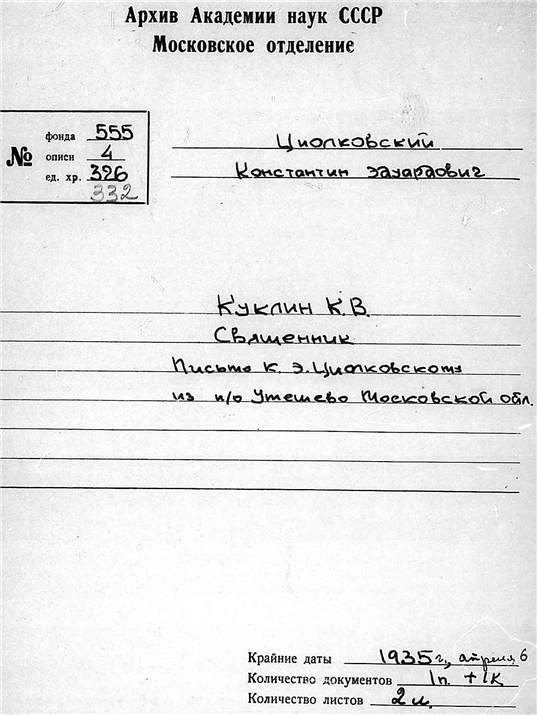 Архив Академии наук СССР
Московское отделение
№
фонда 555
описи 4
ед. хр. 326
332
Циолковский
Константин Эдуардович
Куклин К.В.
Священник
Письмо К.Э. Циолковскому
из п/о Утешево Московской обл.
Крайние даты 1935 г., апреля 6
Количество документов 1п. + 1к
Количество листов 2 л.